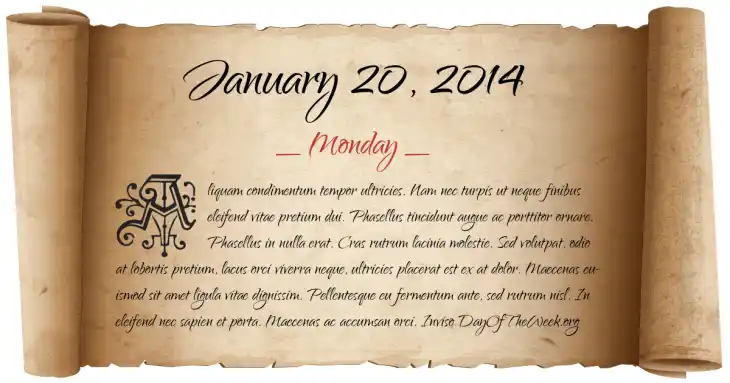 January 20, 2014
_ Monday _
Aliquam condimentum tempor ultricies. Nam nec turpis ut neque finibus
eleifend vitae pretium dui. Phasellus tincidunt augue ac porttitor ornare.
Phasellus in nulla erat. Cras rutrum lacinia molestie. Sed volutpat, odio
at lobortis pretium, lacus orci viverra neque, ultricies placerat est ex at dolor. Maecenas eu-
ismod sit amet ligula vitae dignissim. Pellentesque eu fermentum ante, sed rutrum nisl. In
eleifend nec sapien et porta. Maecenas ac accumsan orci. Inviso DayOfTheWeek.org